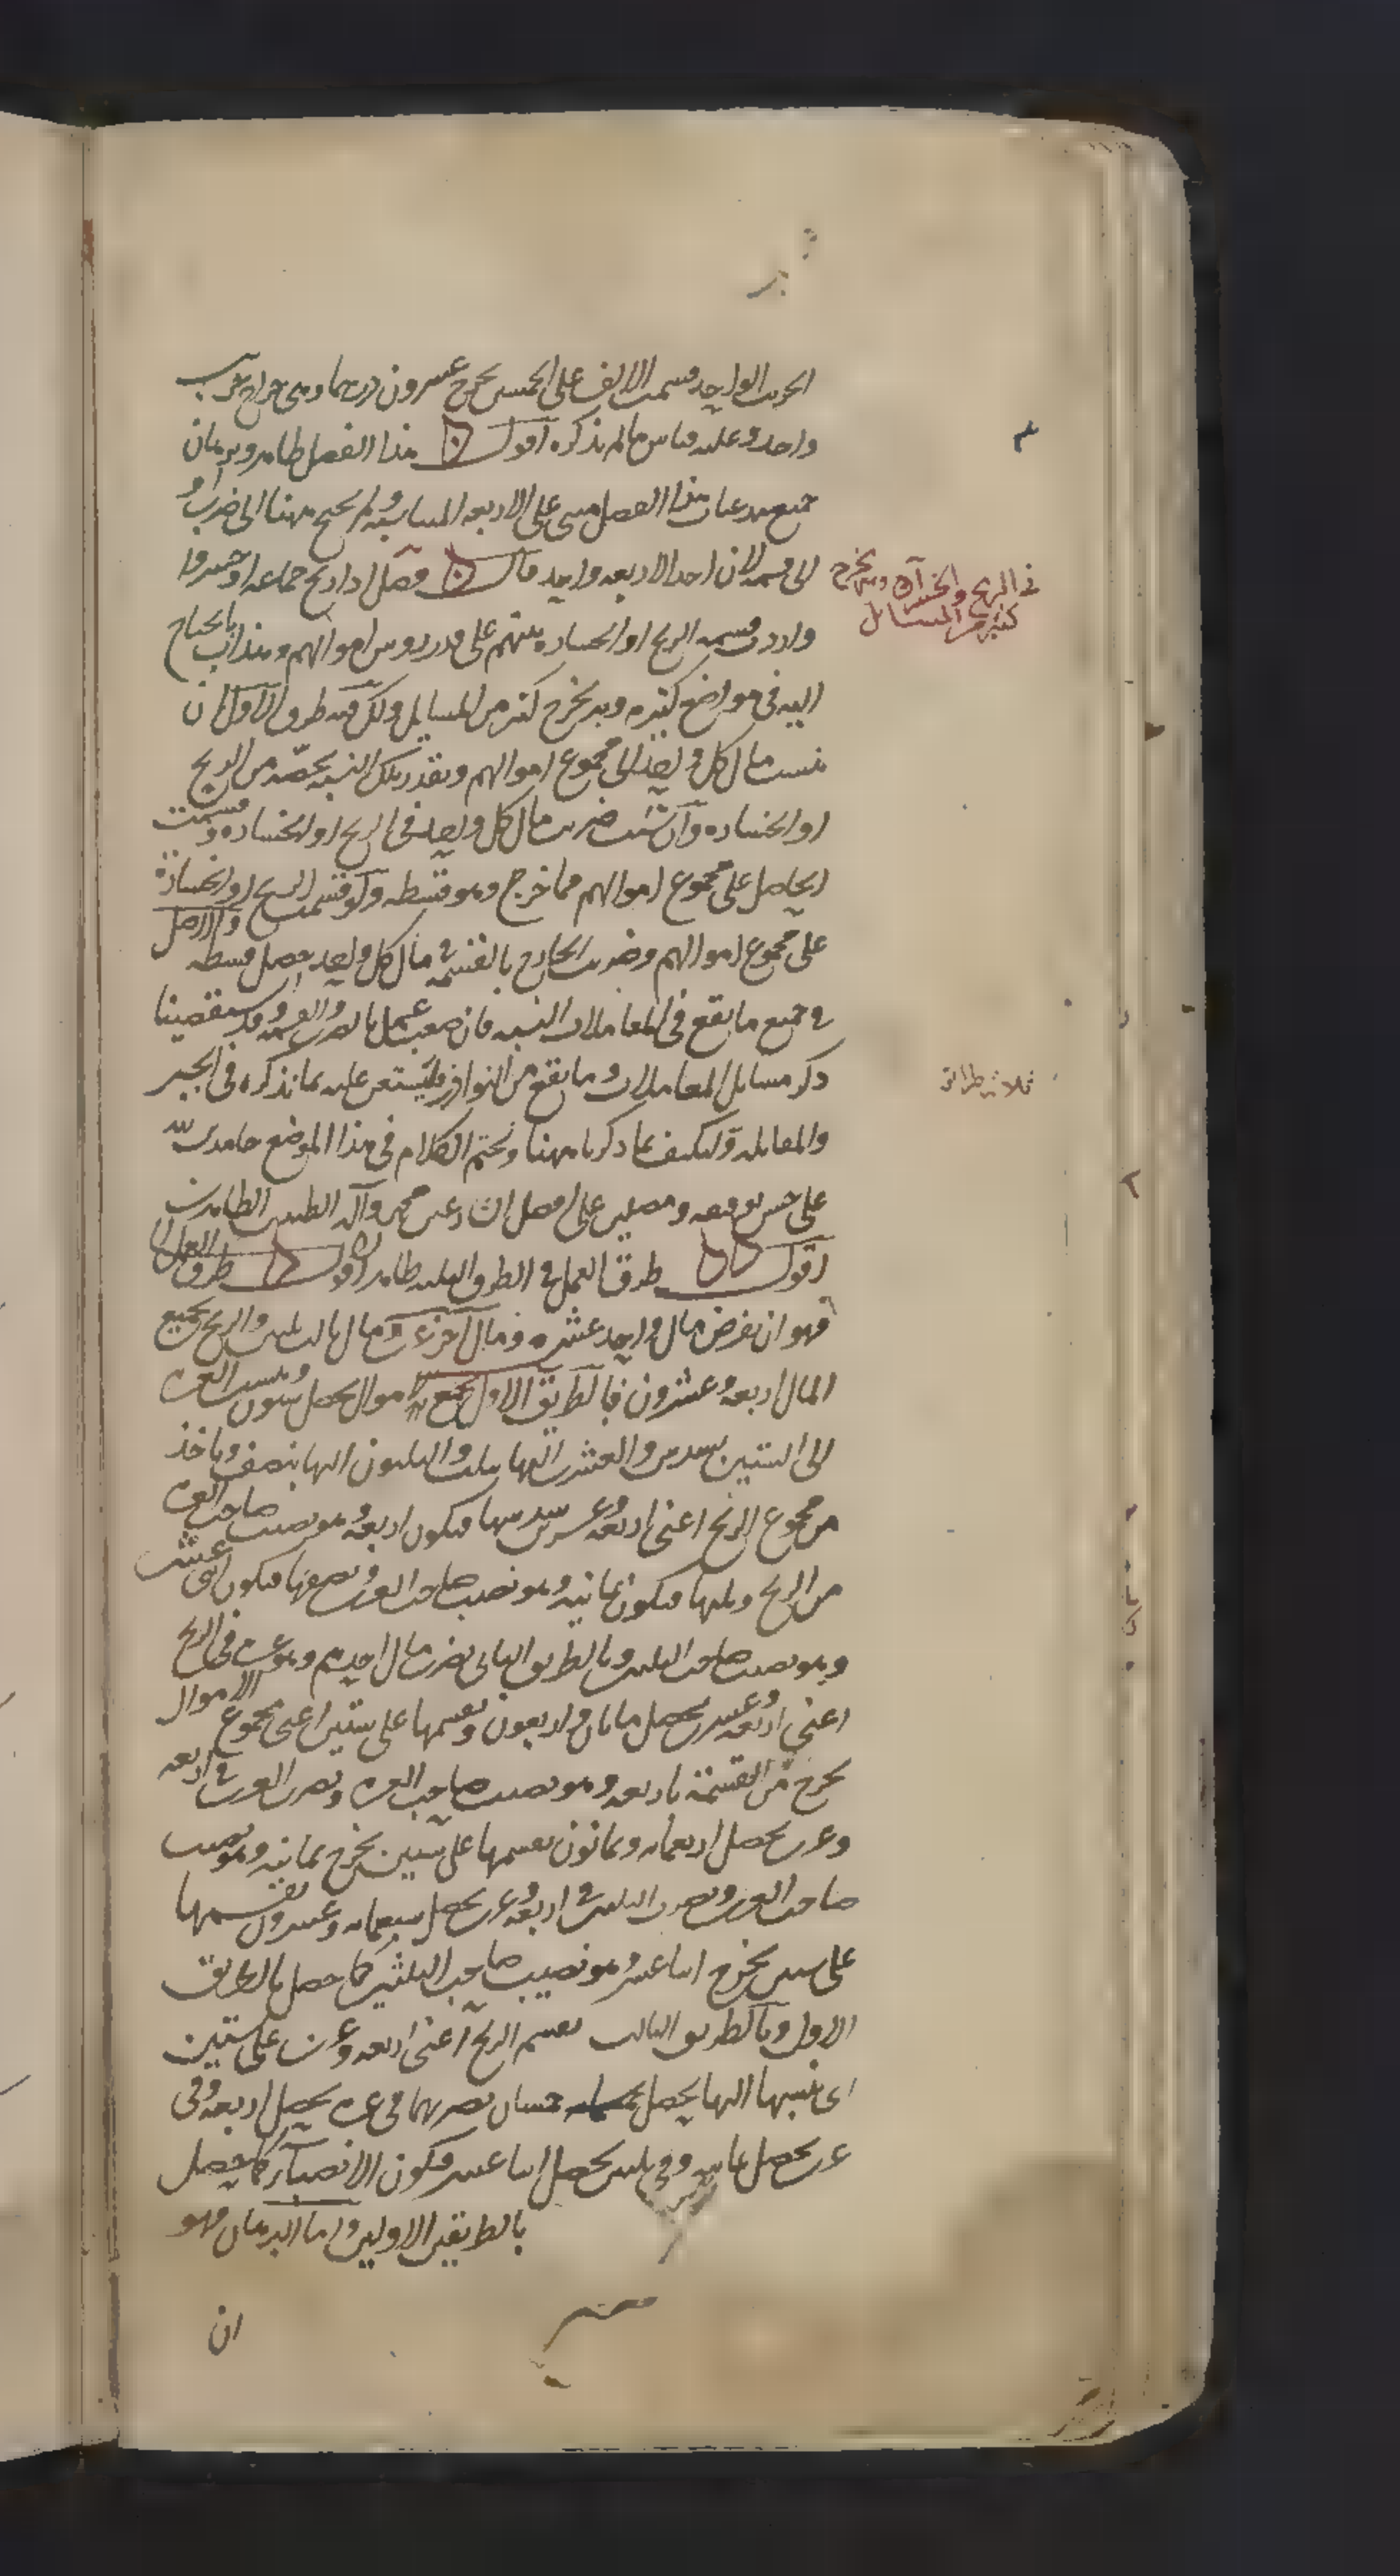 الجريب الواحد قسمت الالف على الخمسين يخرج عشرون درهما وهي خراج جريب
واحد وعليه قياس ما لم نذكره اقول هذا الفصل ظاهر وبرهان
جميع مدعيات هذا الفصل مبني على الاربعة المتناسبة ولم يحتج ههنا الى ضرب او
الى قسمة لان احد الاربعة واحد قال فصل اذا ربح جماعة او خسروا
واردت قسمة الربح او الخسارة بينهم على قدر روس اموالهم وهذا باب يحتاج
اليه في مواضع كثيرة وبه يخرج كثير من المسايل ولك فيه طرق الاول ان
تنسب مال كل واحد الى مجموع اموالهم وبقدر تلك النسبة يخصه من الربح
او الخسارة وان شئت ضربت مال كل واحد في الربح او الخسارة وقسمت
الحاصل على مجموع اموالهم فما خرج وهو قسطه ولو قسمت الربح او الخسارة
على مجموع اموالهم وضربت الخارج بالقسمة في مال كل واحد حصل قسطه والاصل
في جميع ما يقع في المعاملات النسبة فان صعب عمل بالضرب والقسمة وقد استقصينا
ذكر مسايل المعاملات وما يقع من النوادر فليستعن عليه بما نذكره في الجبر
والمقابلة وليكتف بما ذكرنا ههنا ونختم الكلام في هذا الموضع حامدين لله
على حسن توفيقه ومصلين على محمد وآله الطيبين الطاهرين
اقول طرق العمل في الطرق الثلثة ظاهر اقول طرق العمل
فهو ان نفرض مال واحد عشرة ومال آخر عشرين ومال ثالث ثلثين والربح بجميع
المال اربعة وعشرون فبالطريق الاول نجمع الاموال يحصل ستون وننسب العشرة
الى الستين بسدس والعشرين اليها بثلث والثلثون اليها بنصف وناخذ
من مجموع الربح اعني اربعة وعشرين سدسها فيكون اربعة وهو نصيب صاحب العشرة
من الربح وثلثها فيكون ثمانية وهو نصيب صاحب العشرين ونصفها فيكون اثني عشر
وهو نصيب صاحب الثلثين وبالطريق الثاني نضرب مال احدهم وهو عشرة في الربح
اعني اربعة وعشرين يحصل مايتان واربعون ونقسمها على ستين اعني مجموع الاموال
يخرج من القسمة اربعة وهو نصيب صاحب العشرة ونضرب العشرين في اربعة
وعشرين يحصل اربعمايه وثمانون نقسمها على ستين يخرج ثمانية وهو نصيب
صاحب العشرين ونضرب الثلثين في اربعة وعشرين يحصل سبعمايه وعشرون نقسمها
على ستين يخرج اثنا عشر وهو نصيب صاحب الثلثين كما حصل بالطريق
الاول وبالطريق الثالث نقسم الربح اعني اربعة وعشرين على ستين
اى ننسبها اليها يحصل خمسان نضربهما في عشرة يحصل اربعة وفي
عشرين يحصل ثمانية وفي ثلثين يحصل اثنا عشر فيكون الانصباء كما يحصل
بالطريقين الاولين واما البرهان فهو
ان
في الربح والخسران وبه يخرج
كثير من المسايل
ثلاثة طرائق